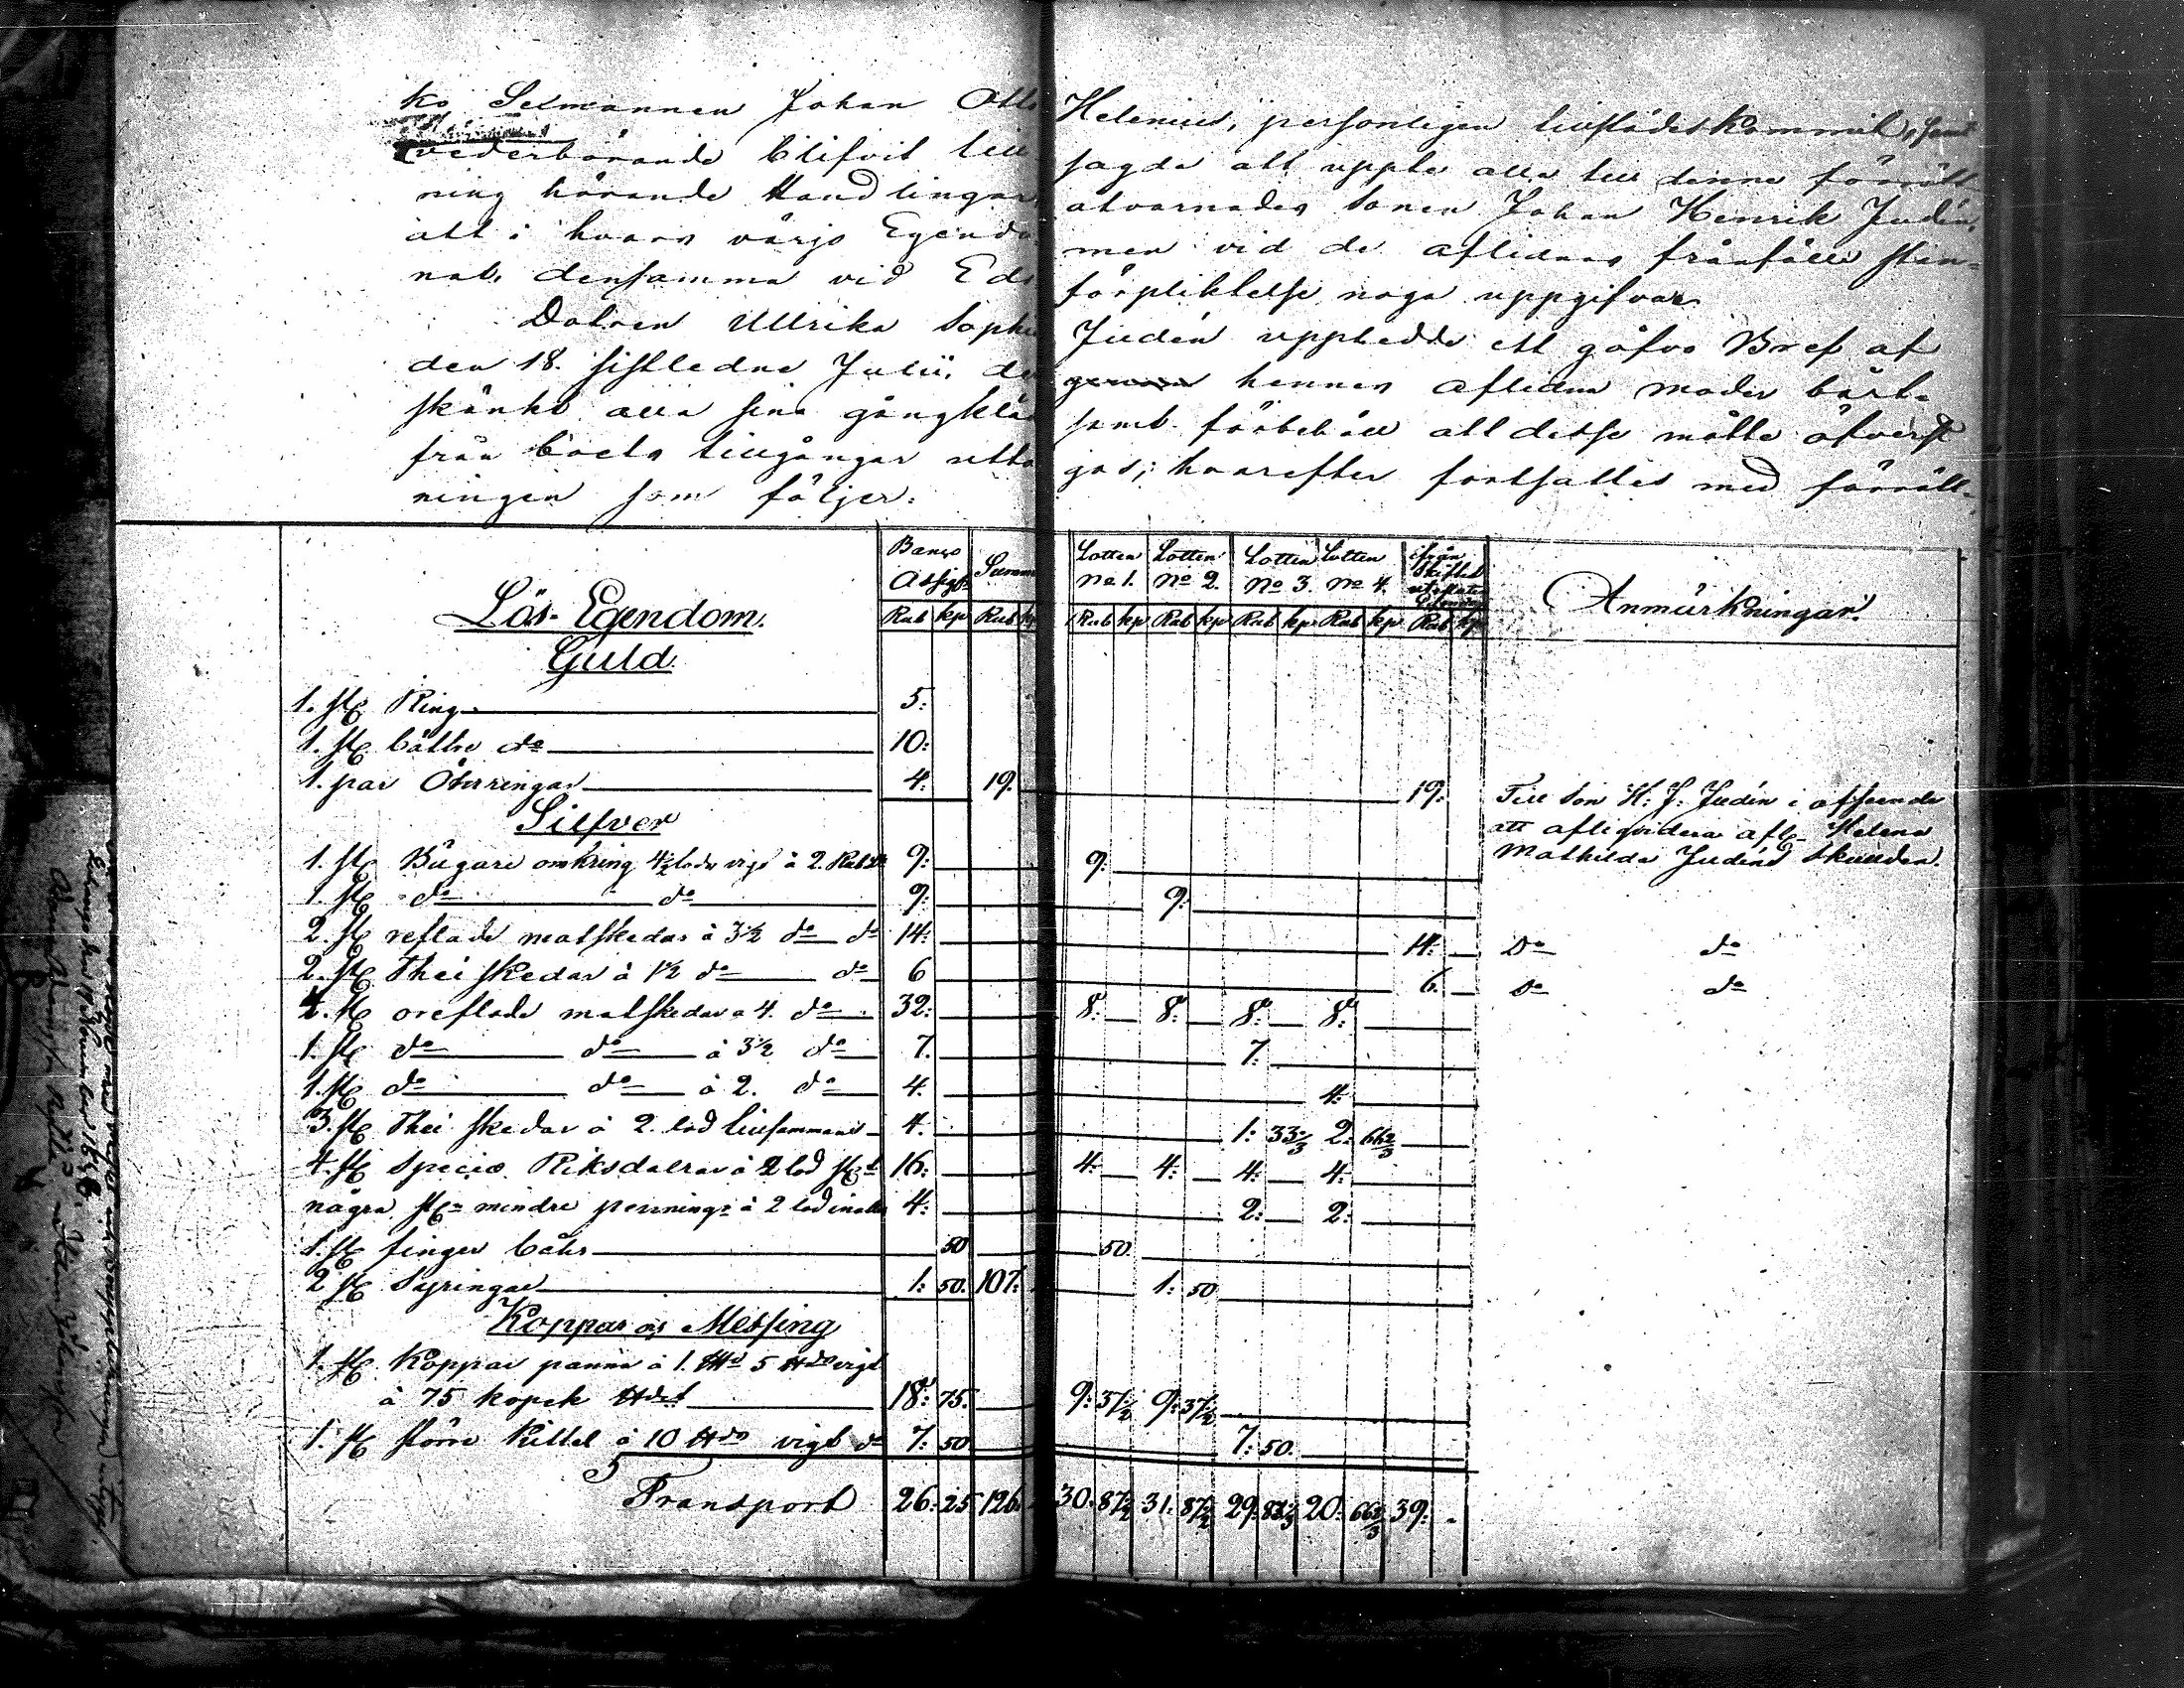 ko Lesmannen Johan Otto Helenius, personligen tillstädeskommit, samt
vederbörande blifvit till sagde att uppte alla till denna förrätt
ning hörande Handlingar, atvarnades Sonen Johan Henrik Judén,
att i hvars värjo Egendo men vid de aflidnas frånfälle stan=
nat, densamma vid Eds förpliktelse noga uppgifva.
Dotren Ullrika Sophi Judén uppledde ett gåfvo Bref af
den 18. sistledne Julii, de hennes aflidna moder bort-
skänkt alla sina gångklä samt förbehåll att desse måtte
från boets tillgångar utta gas; hvarefter fortsattes med förrätt-
ningen som följer:
Lös-Egendom.
Guld.
Banco Assig:
Summ
Lotten No 1.
Lotten No 2.
Lotten No 3.
Lotten No 4.
ifrån Skiftet
Anmärkningar.
Rub kp Rub Rub kp Rub kp Rub kp Rub kp Rub kp
1. st Ring 5:
1. st bättre do 10:
1. par Öhrringar 4: 19. 19: Till Son H: J: Judén i afseende
att afliqvidera afl. Helena
Mathilda Judéns skulder.
Silfver
1. st Bägare omkring 4½ lods vigt à 2. Rub 9: 9.
1. st do do 9: 9:
2. st reflade matskedar à 3½ do do 14: 14: Do do
2. st Theiskedar à 1½ do do 6 6. Do do
4. st oreflade matskedar à 4. do 32: 8: 8: 8: 8:
1. st do do à 3½ do 7. 7:
1. st do do à 2. do 4. 4:
3. st Thei skedar à 2. lod tillsammans 4. 1: 33⅓ 2: 66⅔
4. st Specie Riksdalrar à 2 lod st 16: 4: 4: 4: 4:
några st mindre penningr à 2 lod 4: 2: 2:
1. st finger båhr 50 50.
2 st Syringar 1: 50. 107: 1: 50
Koppar och Messing
1. st Koppar panna à 1. 5 vigt
à 75 kopek 18: 75. 9: 37½ 9: 37½
1. st större Kittel à 10 vigt do 7: 50 7: 50.
Transport 26: 25 126. 30. 87½ 31: 87½ 29: 83⅓ 20: 66⅔ 39: